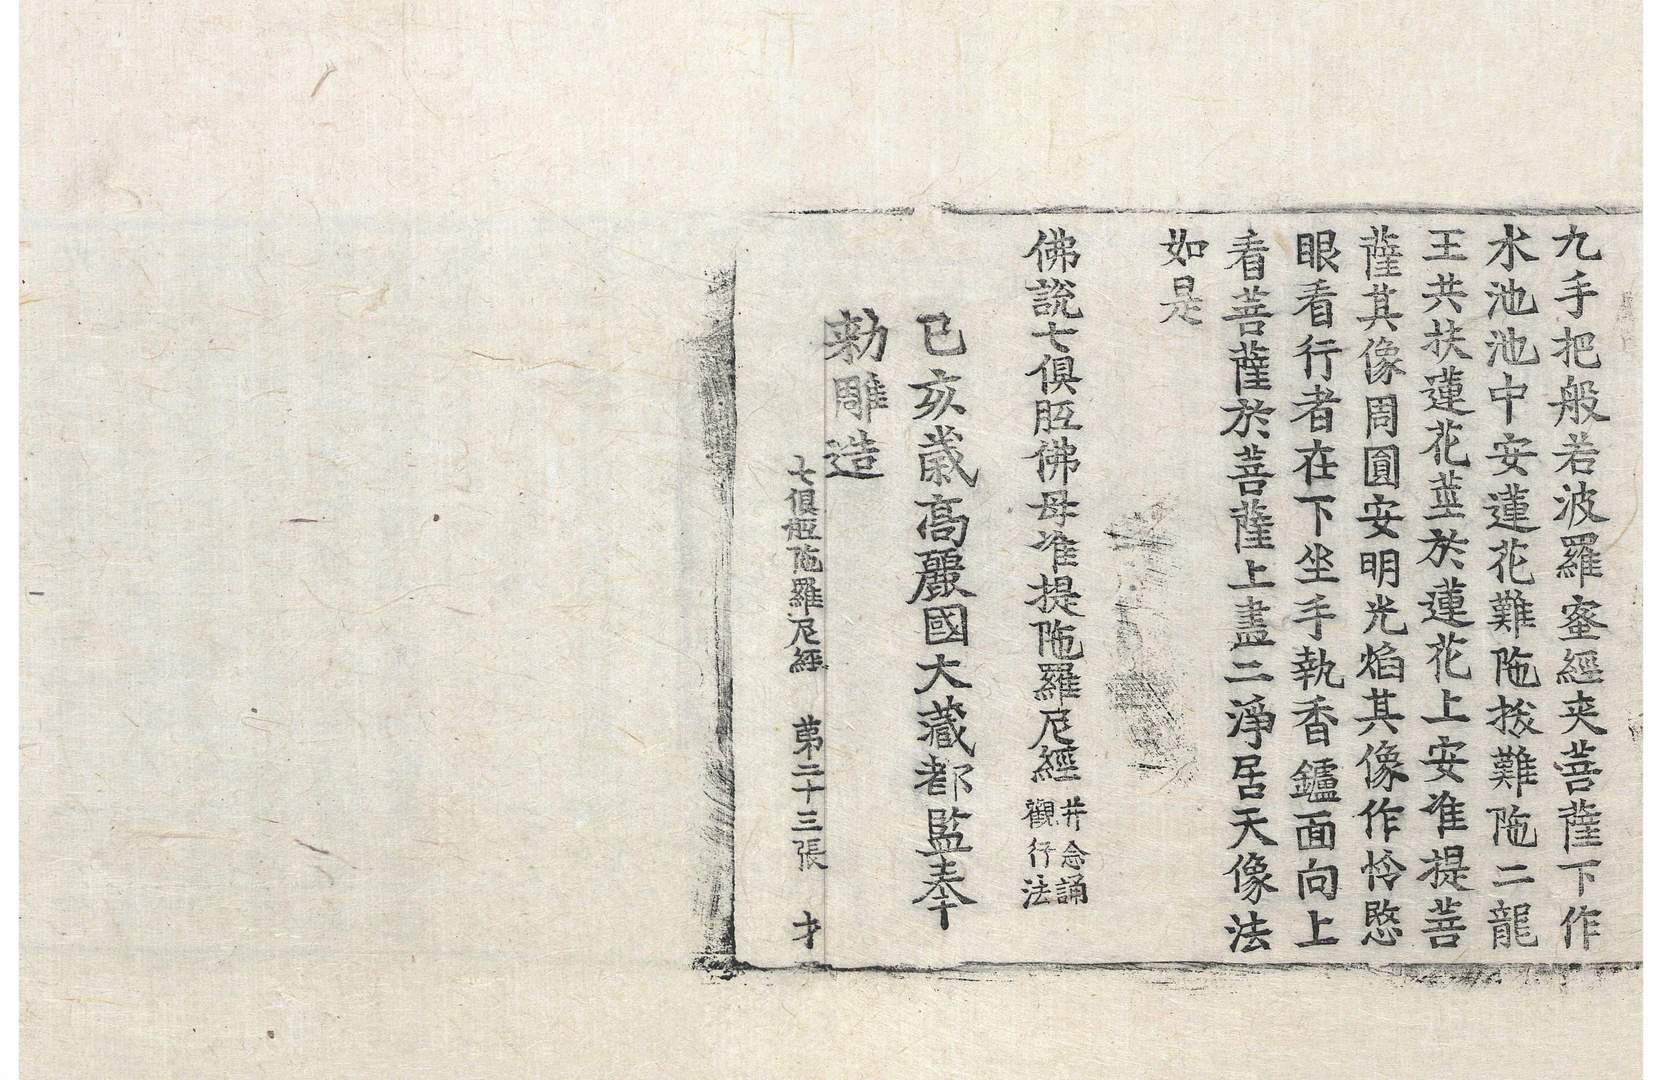 九手把般若波羅蜜經夾菩薩下作
水池池中安蓮花難陁拔難陁二龍
王共扶蓮花莖於蓮花上安准提菩
薩其像周圓安明光焰其像作怜愍
眼看行者在下坐手執香鑪面向上
看菩薩於菩薩上畫二淨居天像法
如是
佛說七俱胝佛母准提陁羅尼經 并念誦觀行法
己亥歲高麗國大藏都監奉
勅雕造
七俱胝陁羅尼經 苐二十三張 才